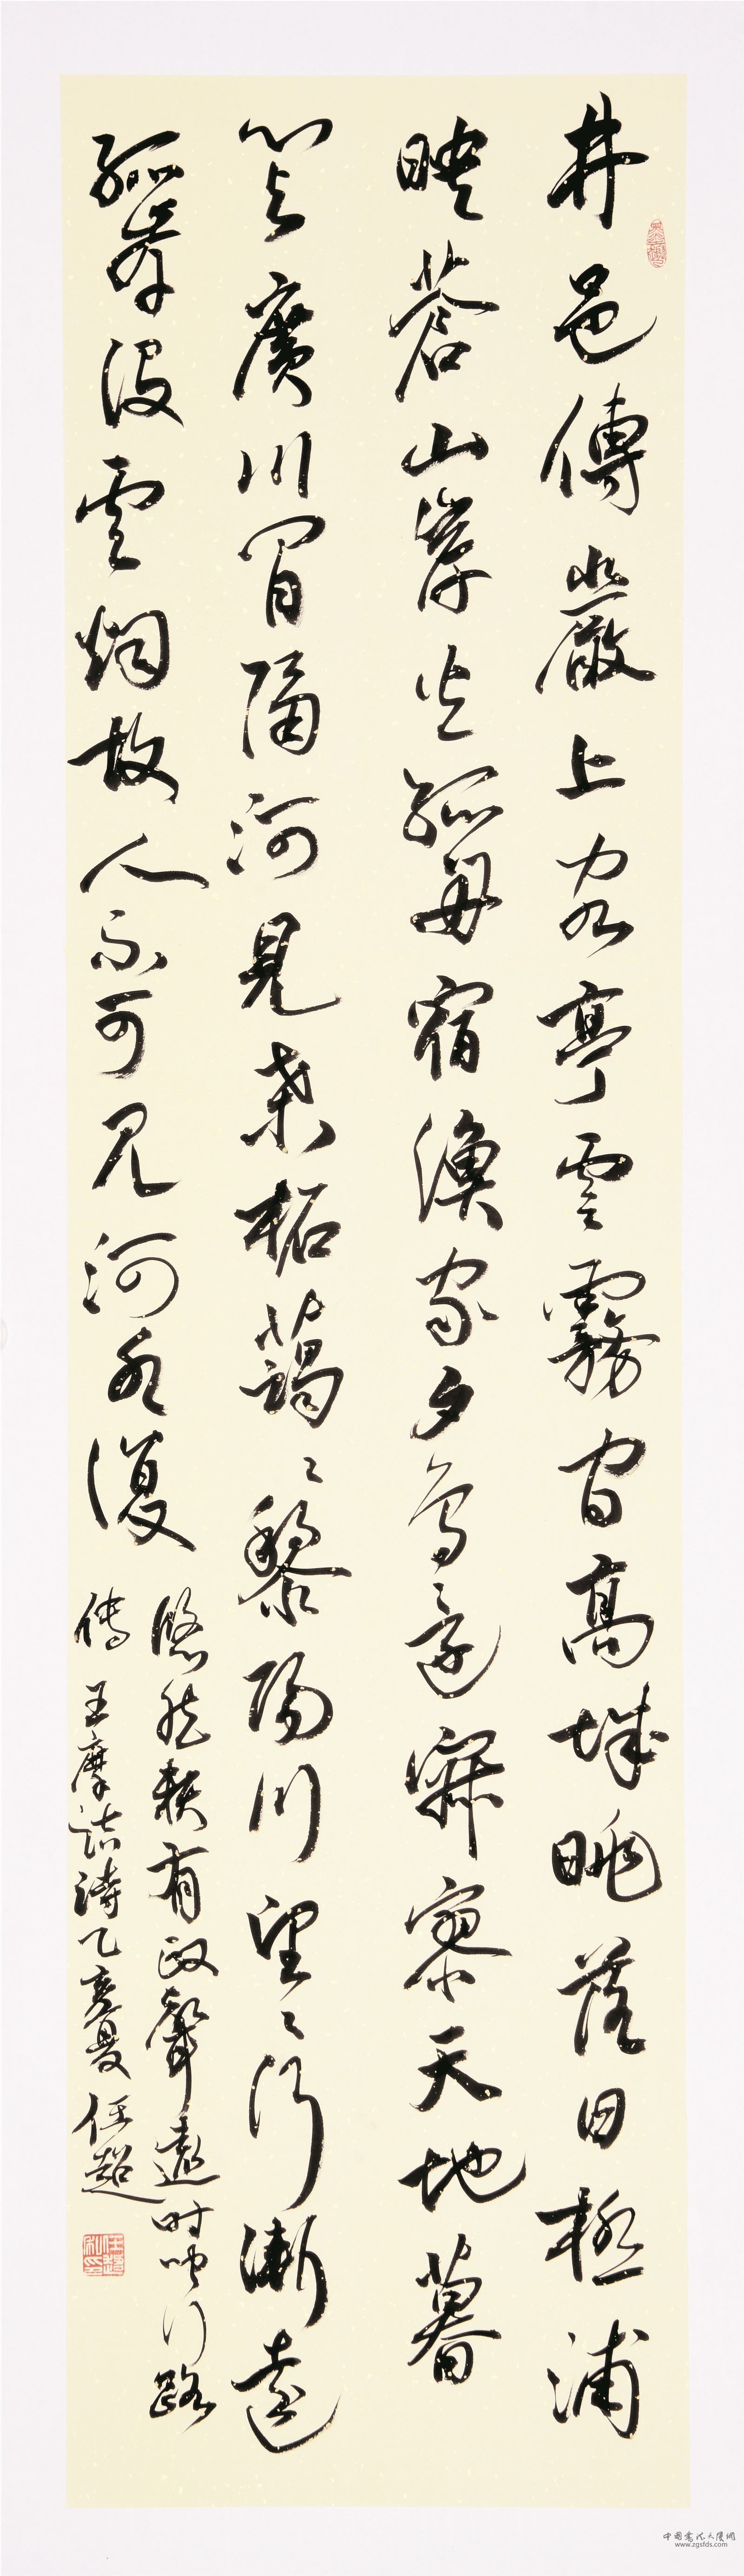 井邑傳巖上客亭雲霧間高城眺落日極浦
映蒼山岸火孤舟宿漁家夕鳥還寂寥天地暮
心与廣川閒隔河見桑柘藹〻黎陽川望〻行漸遠
孤峯没雲烟故人不可見河水復
悠然賴有政聲遠时聞行路
傳 王摩詰詩乙亥夏 任超
中國書法大厦網
www.zgsfds.com